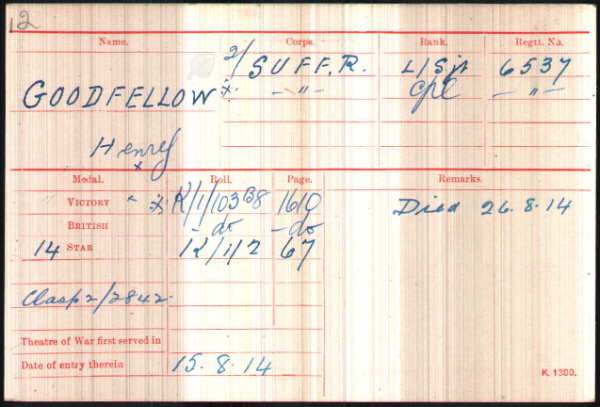 12
Name. Corps. Rank. Regtl. No.
GOODFELLOW 2/SUFF.R. L/Sjt 6537
x. - " - Cpl - " -
Henry
x
Medal. Roll. Page. Remarks.
VICTORY K/1/103B8 1610 Died 26.8.14
BRITISH - do - do
14 STAR K/1/2 67
Clasp 2/2842.
Theatre of War first served in
Date of entry therein 15.8.14
K 1380.